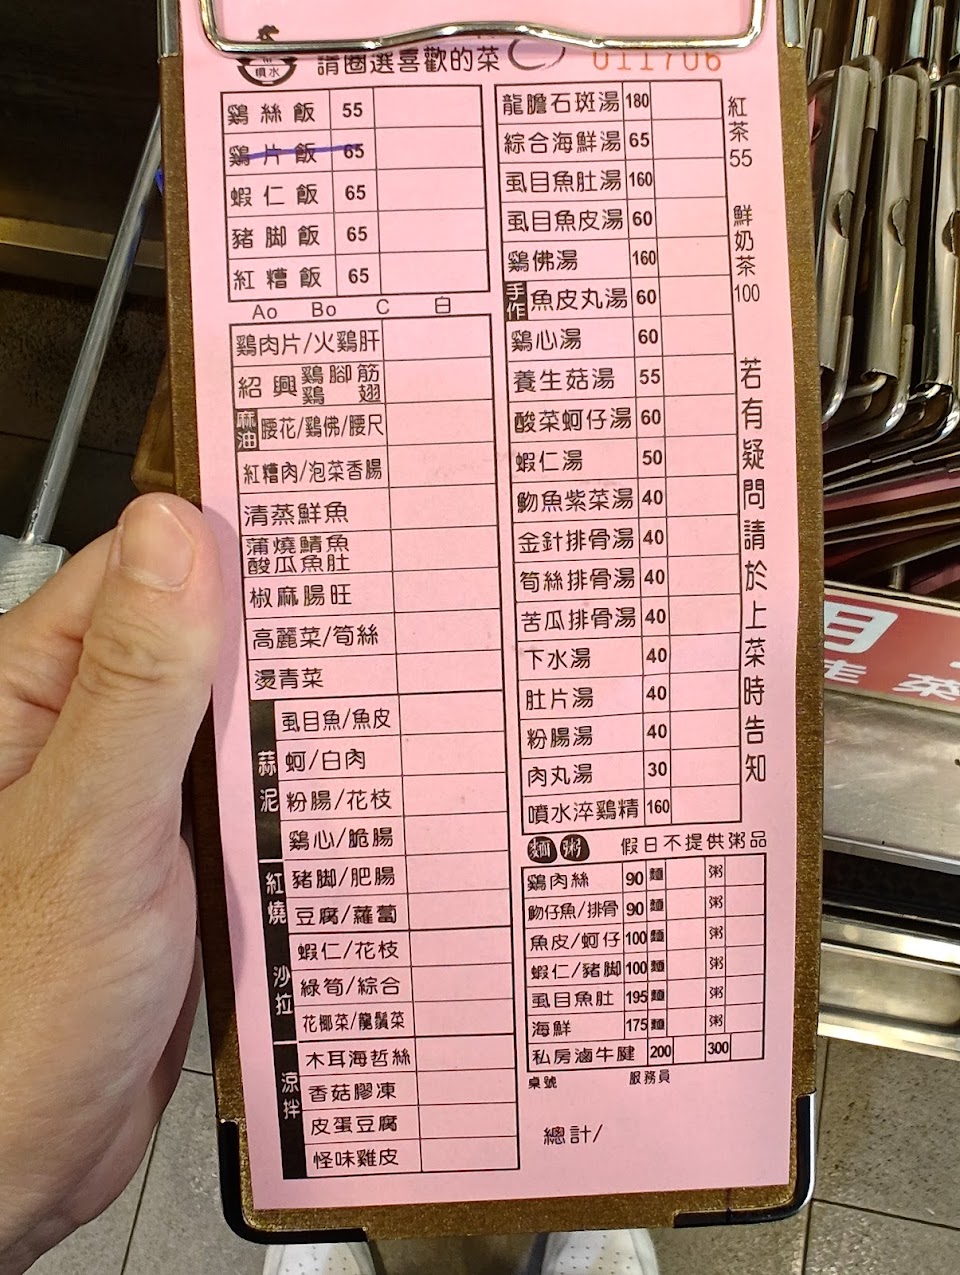 噴水
請圈選喜歡的菜
011706
鷄絲飯 55
鷄片飯 65
蝦仁飯 65
豬脚飯 65
紅糟飯 65
Ao Bo C 白
鷄肉片/火鷄肝
紹興 鷄腳筋 鷄翅
麻油 腰花/鷄佛/腰尺
紅糟肉/泡菜香腸
清蒸鮮魚
蒲燒鯖魚
酸瓜魚肚
椒麻腸旺
高麗菜/筍絲
燙青菜
蒜泥
虱目魚/魚皮
蚵/白肉
粉腸/花枝
鷄心/脆腸
紅燒
豬脚/肥腸
豆腐/蘿蔔
沙拉
蝦仁/花枝
綠筍/綜合
花椰菜/龍鬚菜
涼拌
木耳海哲絲
香菇膠凍
皮蛋豆腐
怪味雞皮
龍膽石斑湯 180
綜合海鮮湯 65
虱目魚肚湯 160
虱目魚皮湯 60
鷄佛湯 160
手作 魚皮丸湯 60
鷄心湯 60
養生菇湯 55
酸菜蚵仔湯 60
蝦仁湯 50
魩魚紫菜湯 40
金針排骨湯 40
筍絲排骨湯 40
苦瓜排骨湯 40
下水湯 40
肚片湯 40
粉腸湯 40
肉丸湯 30
噴水淬鷄精 160
麵 粥 假日不提供粥品
鷄肉絲 90 麵 粥
魩仔魚/排骨 90 麵 粥
魚皮/蚵仔 100 麵 粥
蝦仁/豬脚 100 麵 粥
虱目魚肚 195 麵 粥
海鮮 175 麵 粥
私房滷牛腱 200 300
桌號 服務員
總計/
紅茶55
鮮奶茶100
若有疑問請於上菜時告知
目
菜